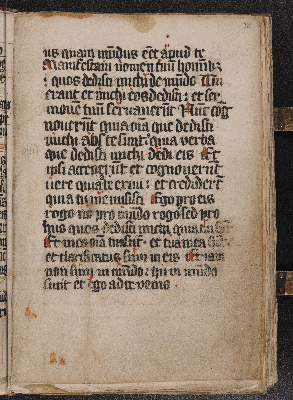 us quam mundus eēt apud te
Manifestaui nomen tuū homīb;
quos dedisti michi de mūdo Tui
erant et michi eos dedisti: et ser
monē tuū seruauerūt Nūc cog
nouerūt quia oīa que dedisti
michi abs te sunt: quia verba
que dedisti michi dedi eis Et
ipsi acceperūt et cognouerūt
uere quia a te exiui: et crediderūt
quia tu me misisti Ego pro eis
rogo nō pro mūdo rogo sed pro
hijs quos dedisti michi quia tui
Et mea oīa tua sūt: et tua mea
et clarificatus sum in eis Et iam
non sum in mūdo: et hij in mūdo
sunt et Ego ad te venio